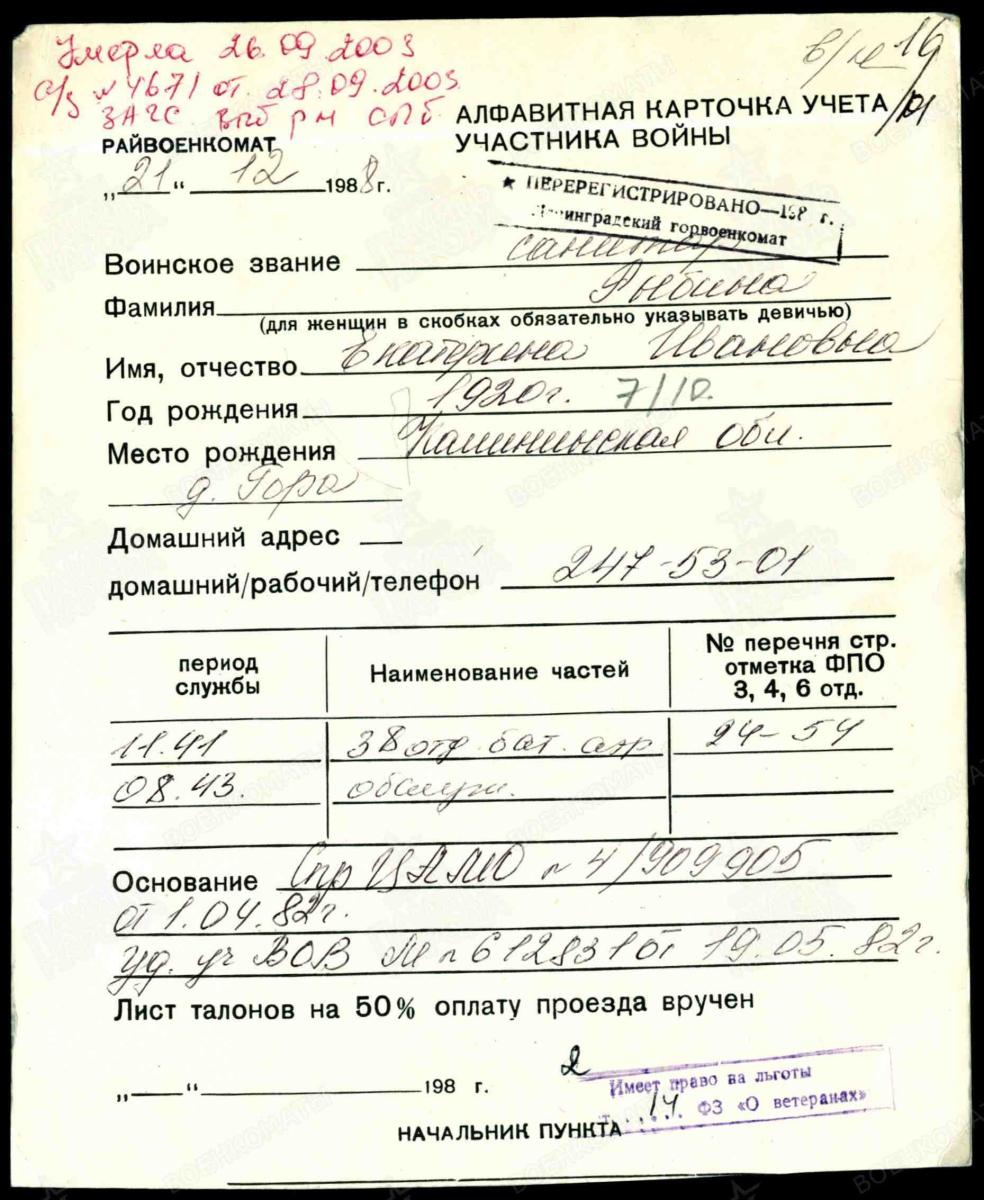 Умерла 26.09.2003
с/з № 4671 от 28.09.2003
ЗАГС СПб
в/п 19
АЛФАВИТНАЯ КАРТОЧКА УЧЕТА
УЧАСТНИКА ВОЙНЫ
РАЙВОЕНКОМАТ
„21“ 12 1988 г.
★ ПЕРЕРЕГИСТРИРОВАНО—198 г.
Ленинградский горвоенкомат
Воинское звание санитар
Фамилия Рыбина
(для женщин в скобках обязательно указывать девичью)
Имя, отчество Екатерина Ивановна
Год рождения 1920г. 7/10.
Место рождения Калининская обл.
д. Гора
Домашний адрес
домашний/рабочий/телефон 247-53-01
период службы Наименование частей № перечня стр. отметка ФПО 3, 4, 6 отд.
11.41 38 отд. бат. аэр 24-54
08.43. обслуж.
Основание Спр ЦАМО № 4/909905
от 1.04.82г.
уд. уч ВОВ № 612831 от 19.05.82г.
Лист талонов на 50% оплату проезда вручен
„ “ 198 г.
2
Имеет право на льготы
14 ФЗ «О ветеранах»
НАЧАЛЬНИК ПУНКТА